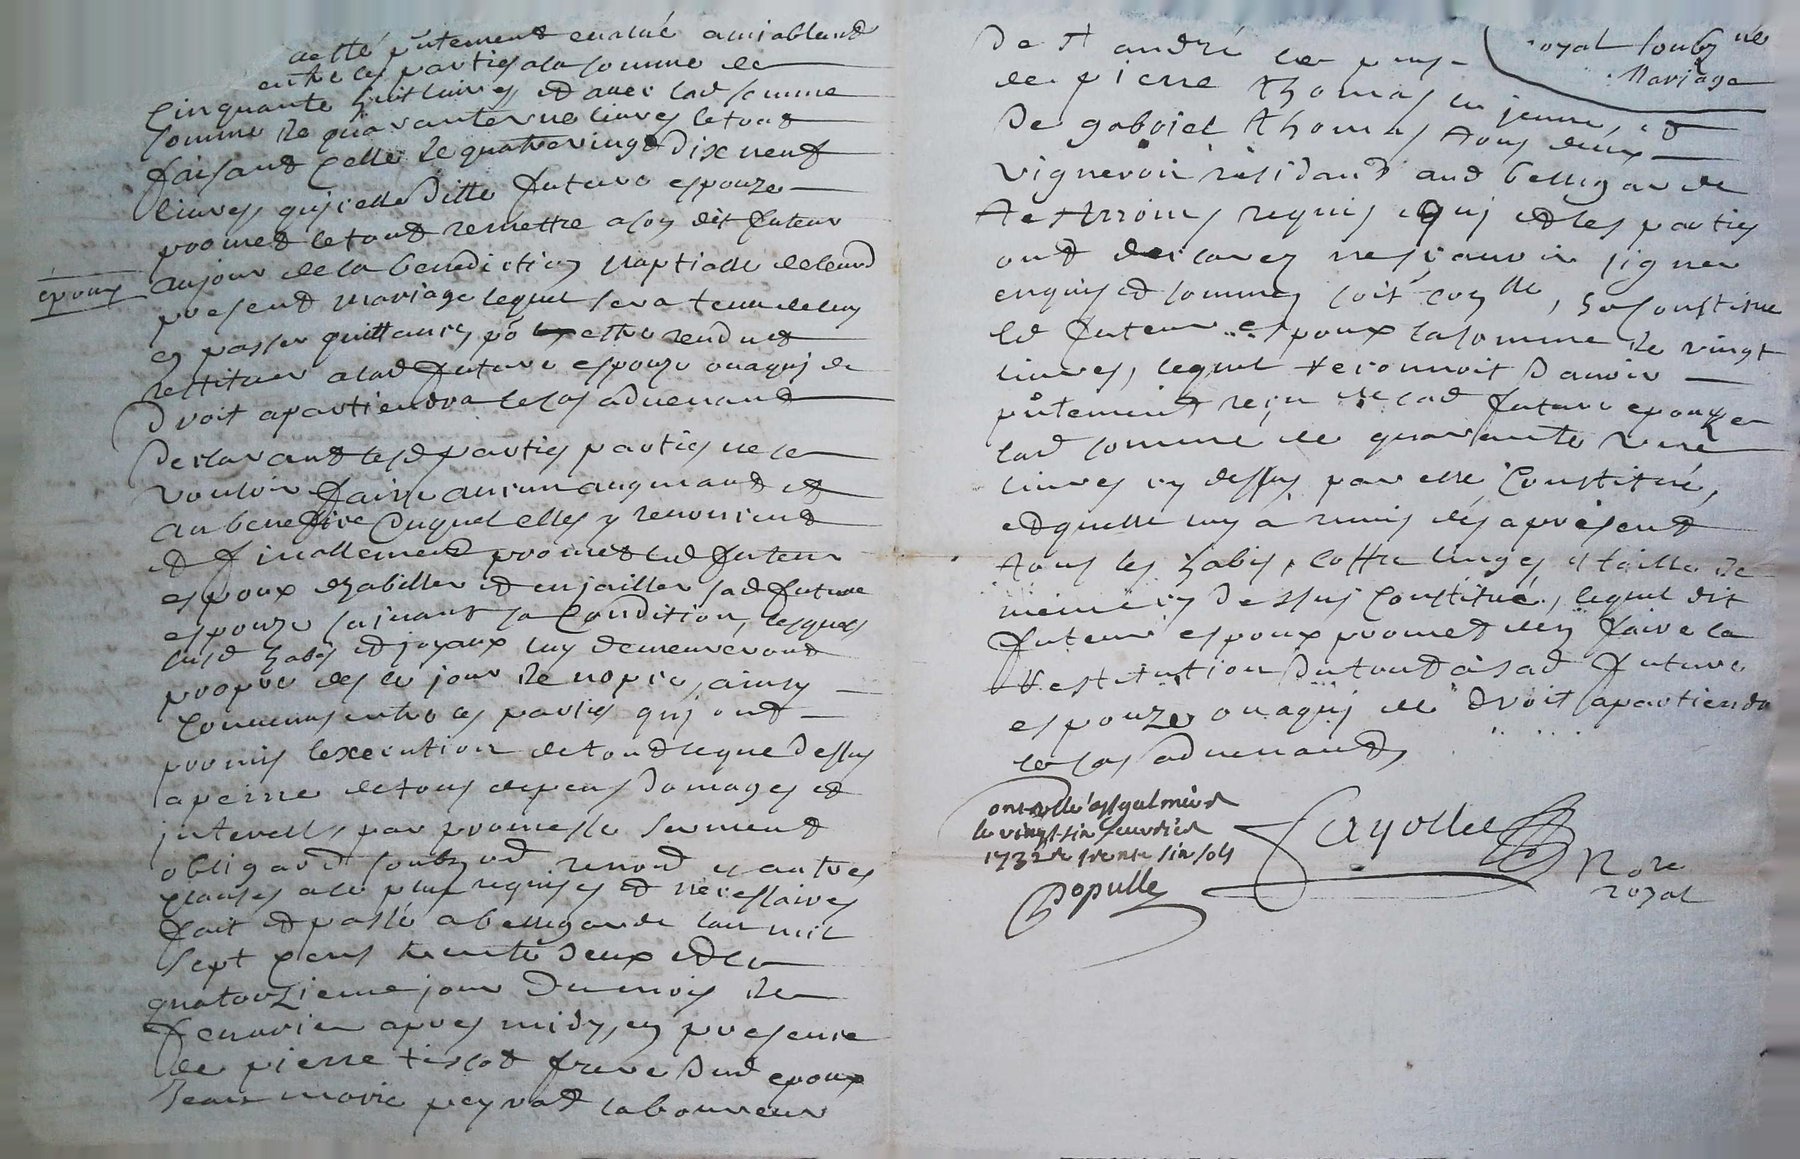 esté pñtement evalué amiablemt
entre les parties a la somme de
Cinquante huit livres et avec lad somme
somme de quarante une livres le tout
faisant celle de quatre vingt dix neuf
livres, qu'icelle ditte future espouze
promet le tout remettre a son dit futeur
époux
au jour de la benediction nuptialle de leurd
present mariage lequel sera tenu de luy
en passer quittance, po estre rendu et
restituer a lad future espouze ou a quj de
droit apartiendra le cas advenant
Declarant lesd parties parties ne se
vouloir faire aucun augmant et
au benefice duquel elles y renoncent
et finallement promet led futeur
espoux dhabiller et enjailler sad future
espouze suivant sa Condition, lesquels
susd habis et joyaux luy demeureront
propre des le jour de nopce, ainsy
Convenus entre les parties quj ont
promis lexecution de tout ce que dessus
a peine de tous depens domages et
interests, par promesse serment
obligaõn soubz aõn renonõn et autres
clauses a ce plus requises et necessaires
fait et passé a bellegarde lan mil
sept cens trente deux et le
quatorzieme jour du mois de
fevrier apres midy, en presence
de pierre tissot frere dud epoux
Jean marie peyrat laboureur
royal soubz né
Mariage
De st andré le puy
de pierre thomas le jeune, et
De gabriel thomas tous deux
vigneron residant aud bellegarde
tesmoins requis quj et les parties
ont declarez ne scavoir signer
enquis et sommes soit , se constitue
led futeur espoux la somme de vingt
livres, lequel reconnoit d'avoir
pñtement reçu de lad future epouze
lad somme de quarante une
livres cy dessus par elle Constitué,
et quelle luy a remis dés a présent
tous les habis, coffre linges et taille de
meme cy dessus Constitué, lequel dit
futeur espoux promet den faire la
restitution du tout à sad future
espouze ou a quj de droit apartiendra
le cas advenant,
Controllé a st galmier
le vingt six feuvrier
1732 R trente six sols
Populle
Fayolle
Nore
royal